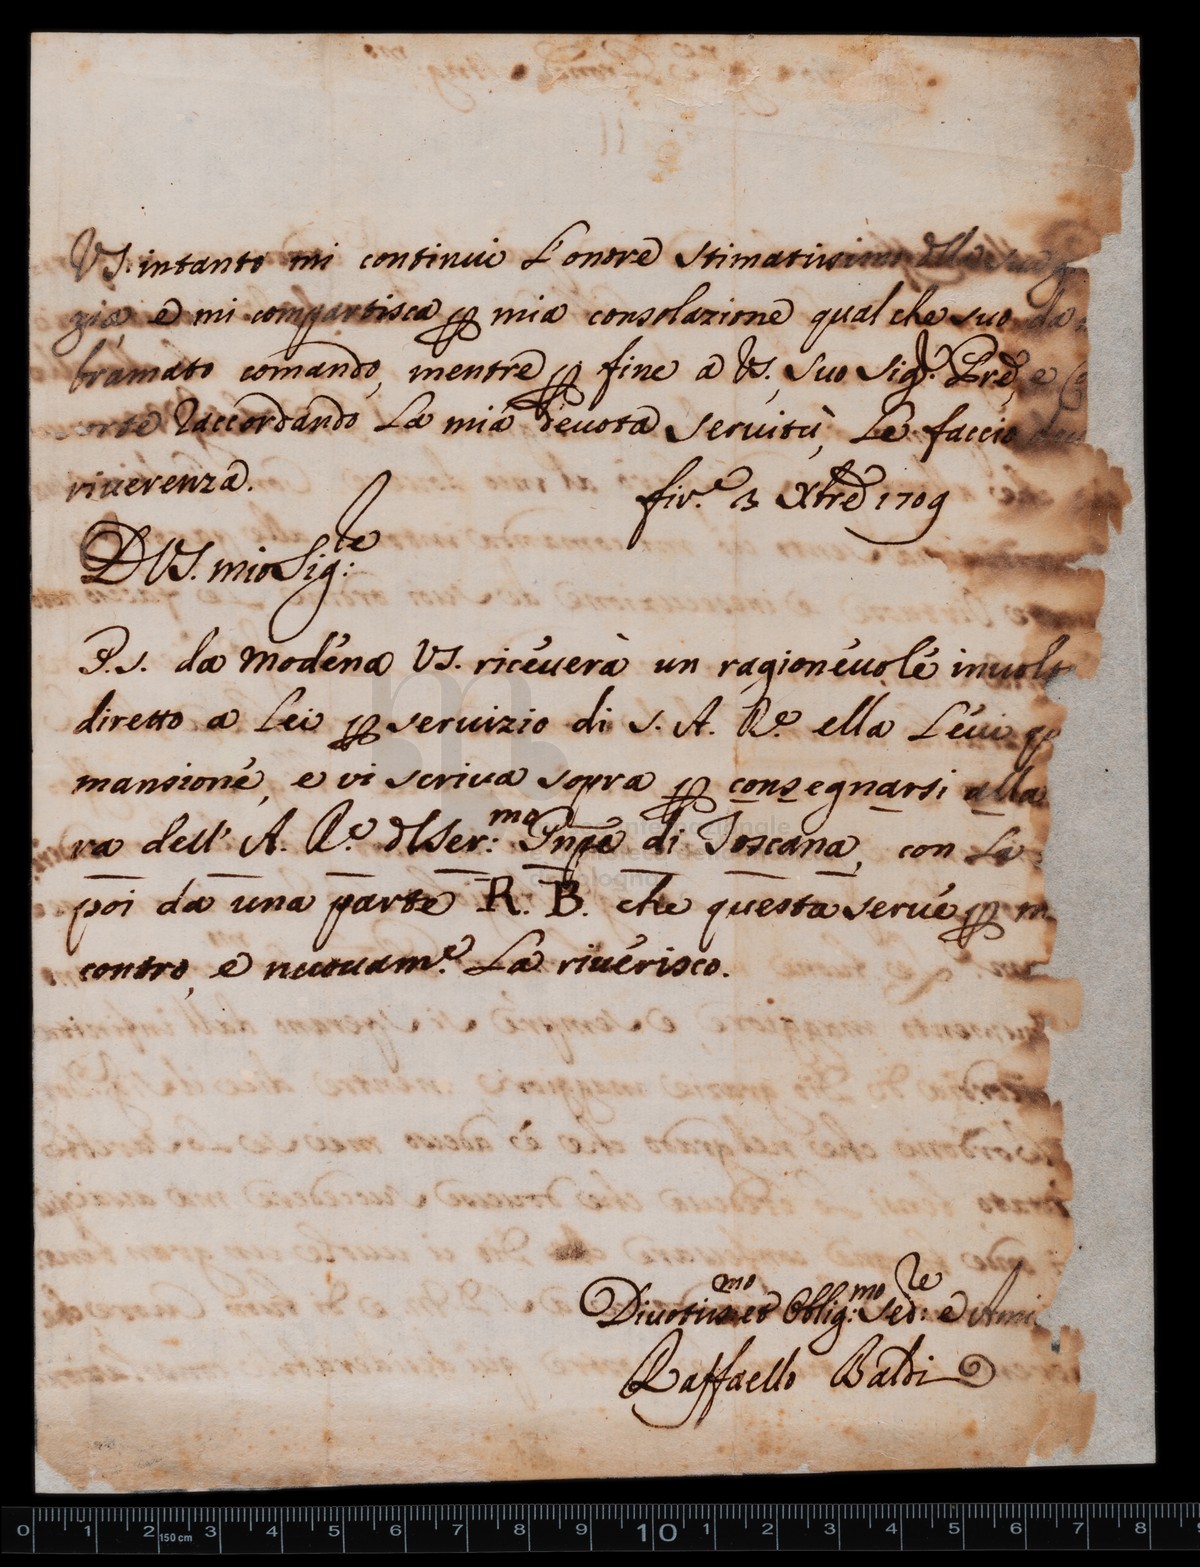 VS. intanto mi continui L'onore stimatissimo della sua
zia e mi compartisca p mia consolazione qualche suo da
bramato comando, mentre p fine a VS. suo Sig.r Pred.e e
sorte raccordando La mia devota servitù, Le faccio
riverenza.
fir.e 3 Xbre 1709
D VS. mio Sig:re
P.S. da Modéna VS. ricéverà un ragionévolé involto
diretto a Lei p servizio di S. A. R.e ella Lévi
mansioné, e vi scriva sopra p consegnarsi alla
ra dell' A. R.e dl Ser:mo Pnpe di Toscana, con La
poi da una parte R. B. che questa servé p
contro, e nuovam.e La rivérisco.
Divotiss.mo et Oblig:mo Sed:re e Ami
Raffaello Baldi
0 1 2 150 cm 3 4 5 6 7 8 9 10 1 2 3 4 5 6 7 8 9